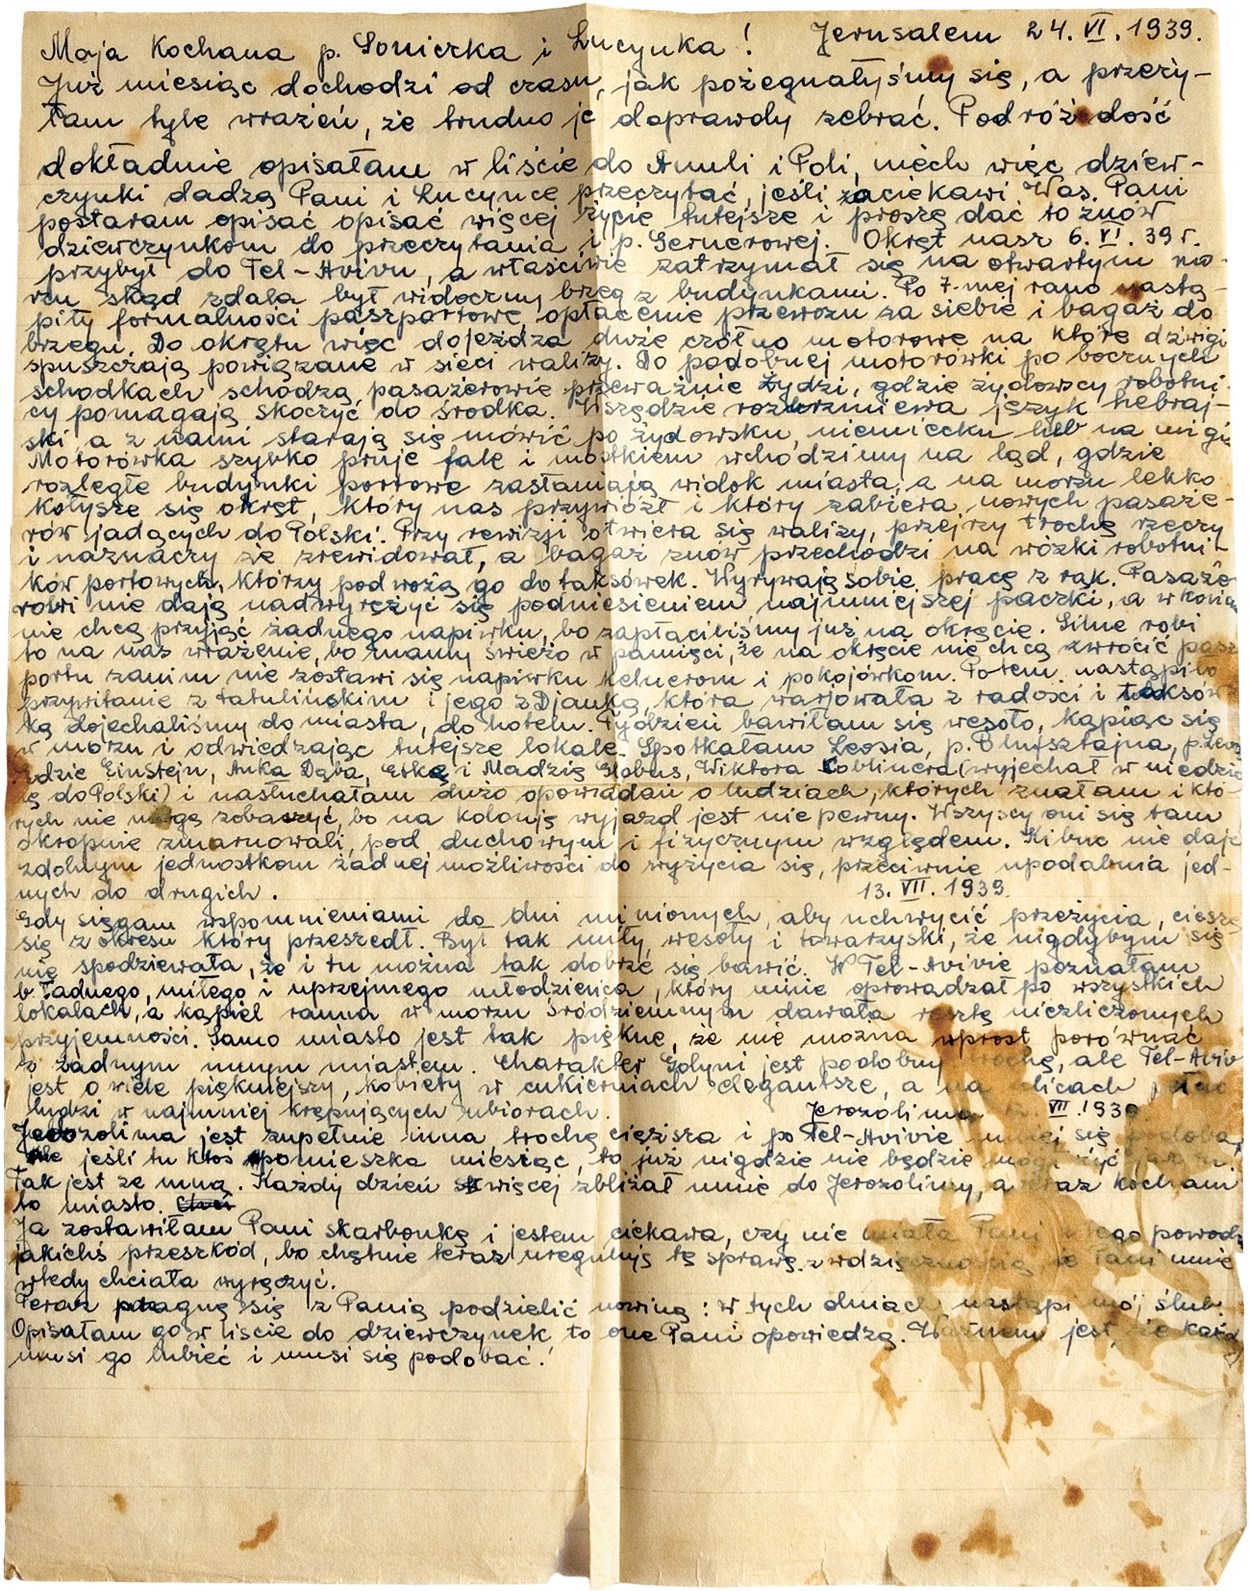 Jerusalem 24. VI. 1939.
Maja Kochana p. Soniczka i Lucynka!
Już miesiąc dochodzi od czasu, jak pożegnałyśmy się, a przeży-
łam tyle wrażeń, że trudno je doprawdy zebrać. Podróż dość
dokładnie opisałam w liście do Anuli i Poli, niech więc dziew-
czynki dadzą Pani i Lucynce przeczytać, jeśli zaciekawi Was. Pani
postaram opisać opisać więcej życie tutejsze i proszę dać to znów
dziewczynkom do przeczytania i p. Gernerowej. Okręt nasz 6. VI. 39 r.
przybył do Tel-Avivu, a właściwie zatrzymał się na otwartym mo-
rzu skąd zdala był widoczny brzeg z budynkami. Po 7-mej rano nastą-
piły formalności paszportowe, opłacenie przewozu za siebie i bagaż do
brzegu. Do okrętu więc dojeżdża duże czółno motorowe na które dźwigi
spuszczają powiązane w sieci walizy. Do podobnej motorówki po bocznych
schodkach schodzą pasażerowie przeważnie Żydzi, gdzie żydowscy robotni-
cy pomagają skoczyć do środka. Wszędzie rozbrzmiewa język hebraj-
ski a z nami starają się mówić po żydowsku, niemiecku lub na migi.
Motorówka szybko pruje fale i mostkiem wchodzimy na ląd, gdzie
rozległe budynki portowe zasłaniają widok miasta, a na morzu lekko
kołysze się okręt, który nas przywiózł i który zabiera nowych pasaże-
rów jadących do Polski. Przy rewizji otwiera się walizy, przejrzy trochę rzeczy
i naznaczy że zrewidował, a bagaż znów przechodzi na wózki robotni-
ków portowych, którzy podwożą go do taksówek. Wyrywają sobie pracę z rąk. Pasaże-
rowi nie dają nadwyrężyć się podniesieniem najmniejszej paczki, a w końcu
nie chcą przyjąć żadnego napiwku, bo zapłaciliśmy już na okręcie. Silne robi
to na nas wrażenie, bo mamy świeżo w pamięci, że na okręcie nie chcą zwrócić pasz
portu zanim nie zostawi się napiwku kelnerom i pokojówkom. Potem nastąpiło
przywitanie z tatulińskim i jego z Djanką, która warjowała z radości i taksów
ką dojechaliśmy do miasta, do hotelu. Tydzień bawiłam się wesoło, kąpiąc się
w morzu i odwiedzając tutejsze lokale. Spotkałam Leosia, p. Blufsztajna,
Einstejn, Anka Dąba, Etkę i Madzię Globus, Wiktora Coblincra (wyjechał w niedzie
lę do Polski) i nasłuchałam dużo opowiadań o ludziach, których znałam i któ-
rych nie mogę zobaczyć, bo na kolonję wyjazd jest niepewny. Wszyscy oni się tam
okropnie zmarnowali, pod duchowym i fizycznym względem. Kibuc nie daje
zdolnym jednostkom żadnej możliwości do wyżycia się, przeciwnie upodabnia jed-
nych do drugich.
13. VII. 1939.
Gdy sięgam wspomnieniami do dni minionych, aby uchwycić przeżycia, cieszę
się z okresu który przeszedł. Był tak miły, wesoły i towarzyski, że nigdybym się
nie spodziewała, że i tu można tak dobrze się bawić. W Tel-Avivie poznałam
b. ładnego, miłego i uprzejmego młodzieńca, który mnie oprowadzał po wszystkich
lokalach, a kąpiel ranna w morzu śródziemnym dawała resztę niezliczonych
przyjemności. Samo miasto jest tak piękne, że nie można wprost porównać
z żadnym innym miastem. Charakter Gdyni jest podobny trochę, ale Tel-Aviv
jest o wiele piękniejszy, kobiety w cukierniach elegantsze, a na ulicach pełno
ludzi w najmniej krępujących ubiorach.
Jerozolima VII. 1939
Jerozolima jest zupełnie inna, trochę cięższa i po Tel-Avivie mniej się podoba,
Ale jeśli tu ktoś pomieszka miesiąc, to już nigdzie nie będzie mógł żyć
Tak jest ze mną. Każdy dzień więcej zbliżał mnie do Jerozolimy, a teraz kocham
to miasto.
Ja zostawiłam Pani skarbonkę i jestem ciekawa, czy nie miała Pani z tego powodu
jakichś przeszkód, bo chętnie teraz ureguluję tę sprawę z wdzięcznością że Pani mnie
wtedy chciała wyręczyć.
Teraz pragnę się z Panią podzielić nowiną: w tych dniach nastąpi mój ślub.
Opisałam go w liście do dziewczynek, to one Pani opowiedzą. Ważnem jest, że każdy
musi go lubieć i musi się podobać.